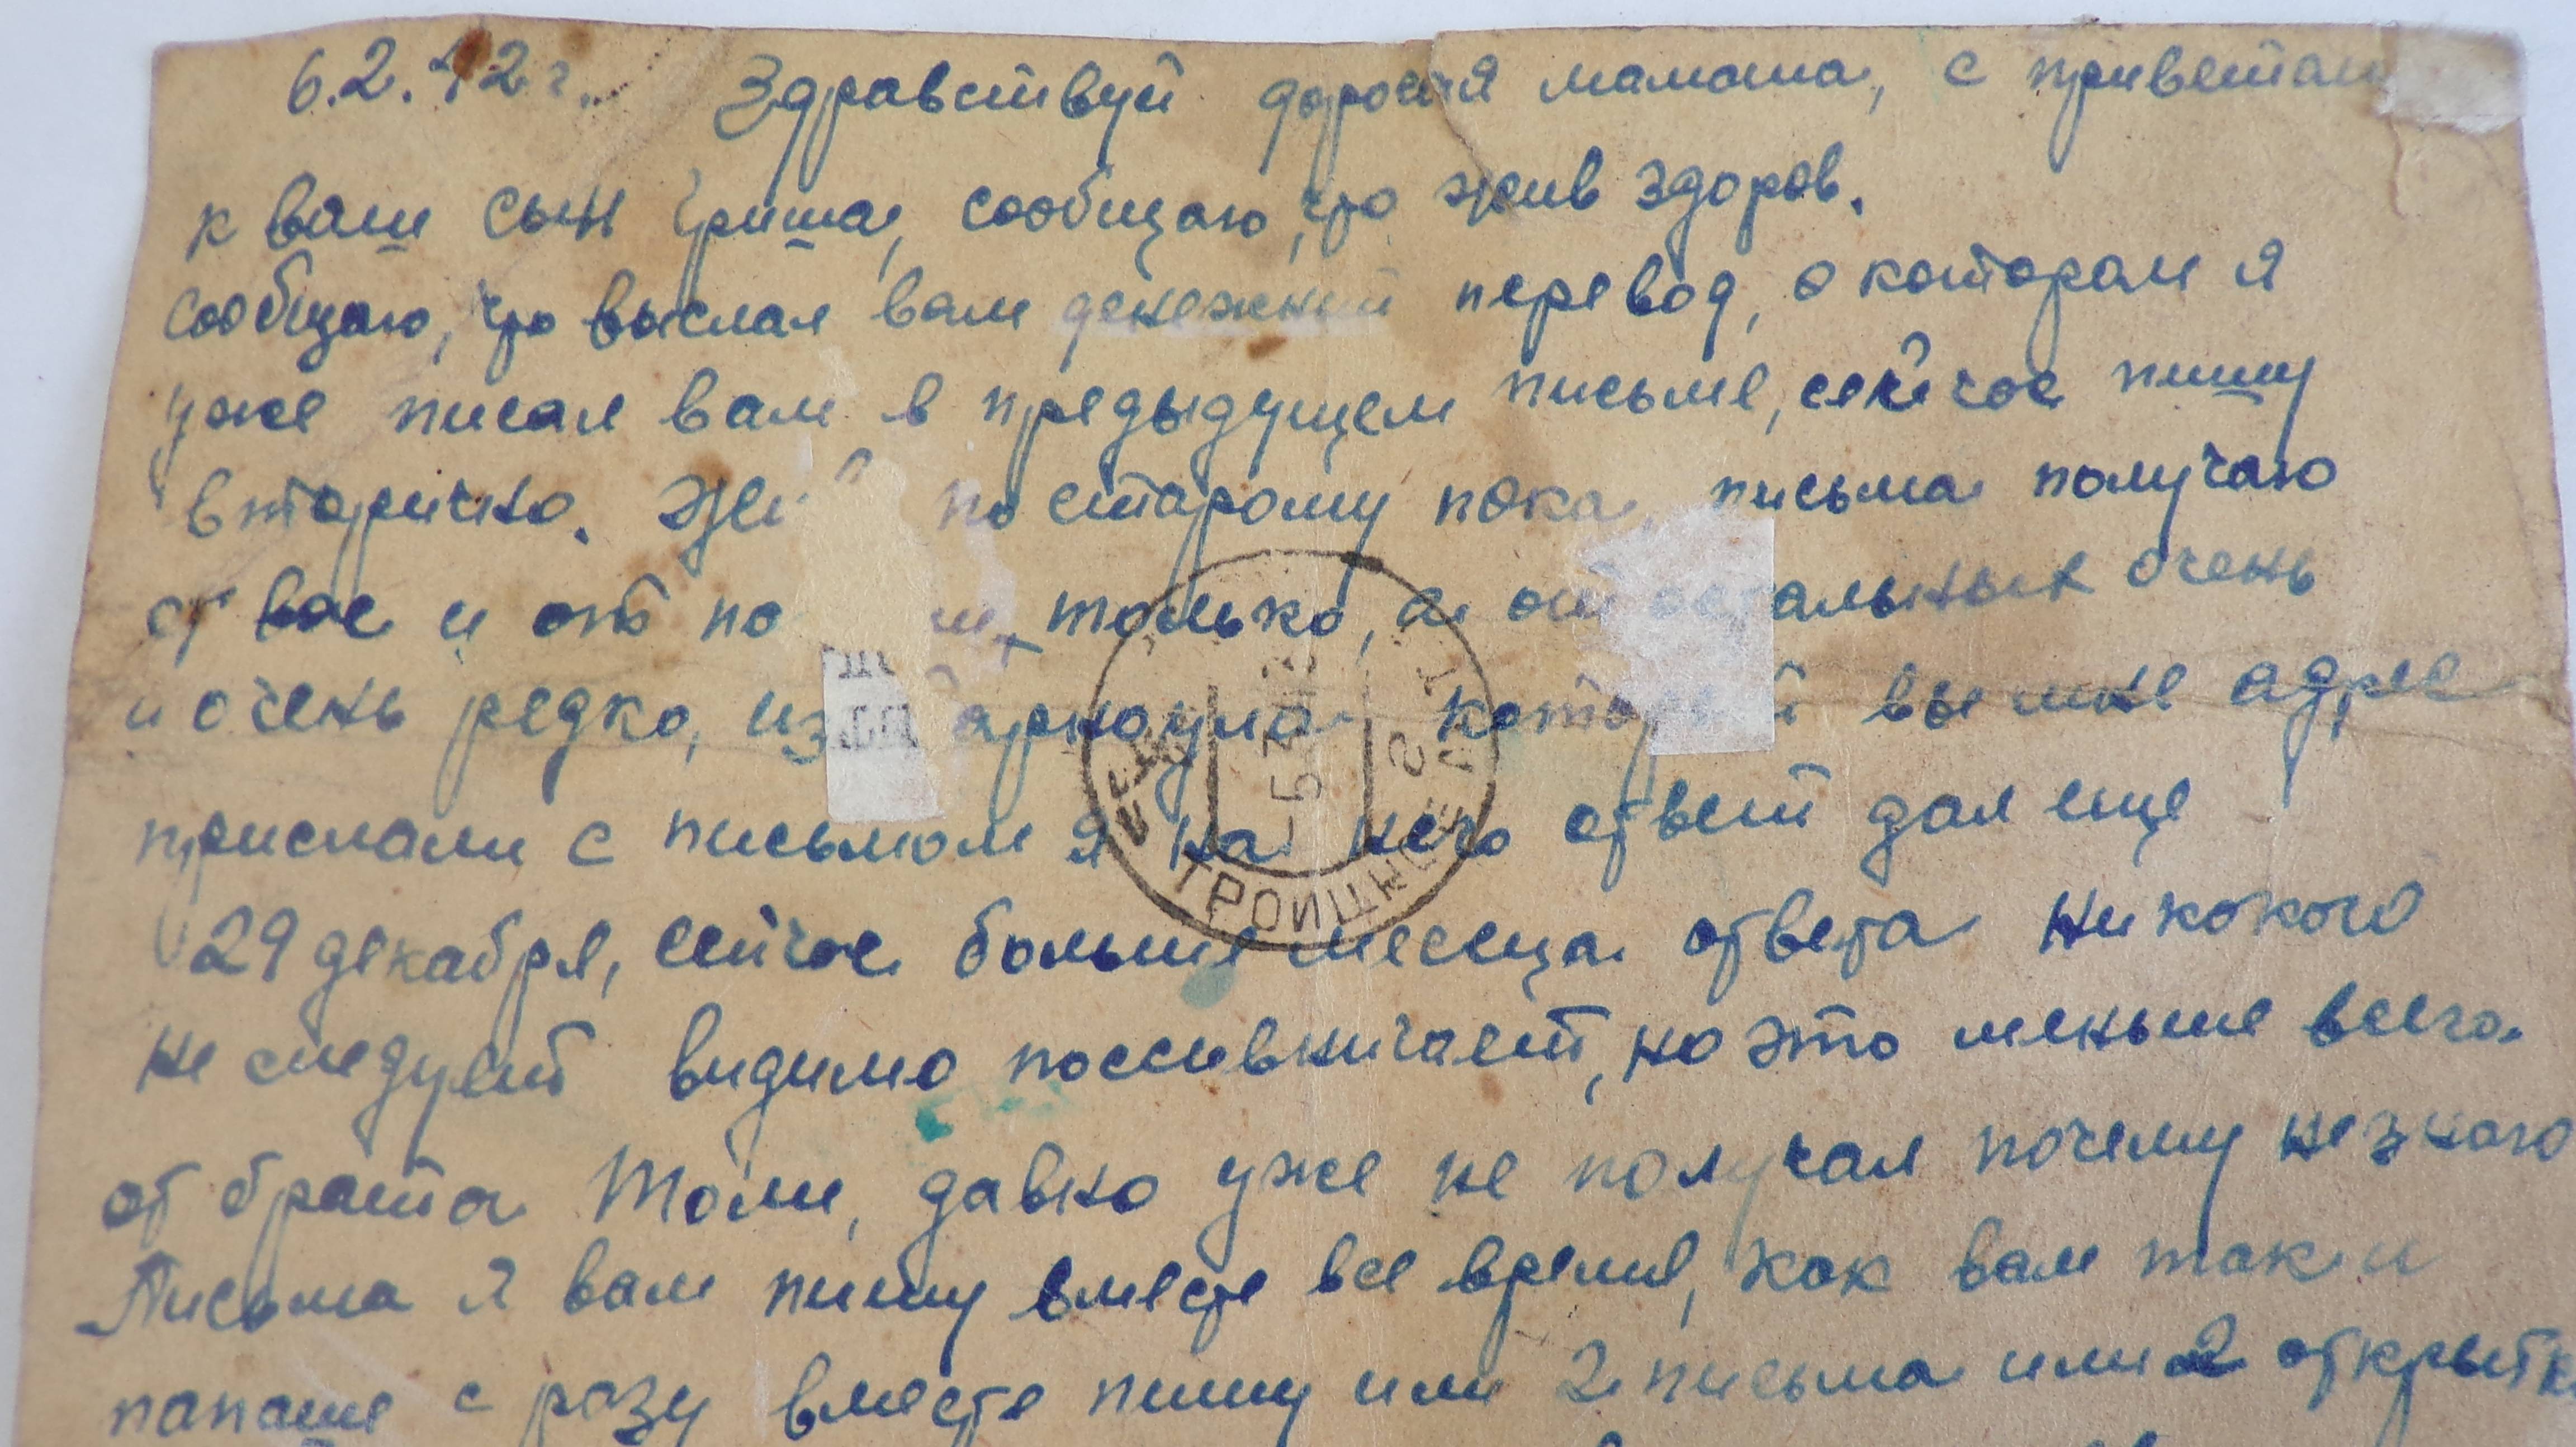 6.2.42г. Здравствуй дорогая мамаша, с приветом
к вам сын Гриша, сообщаю, что жив здоров.
сообщаю, что выслал вам денежный перевод, о котором я
уже писал вам в предыдущем письме, сейчас пишу
вторично. по старому пока, письма получаю
от вас и от только, а от остальных очень
и очень редко, из который вы мне адрес
прислали с письмом я на него ответ дал еще
29 декабря, сейчас больше месеца ответа никокого
не следует видимо поссивничает, но это меньше всего.
от брата Толи, давно уже не получал почему незнаю
Письма я вам пишу вместе все время, как вам так и
папаше с разу вместе пишу или 2 письма или 2 открытк
ТРОИЦК